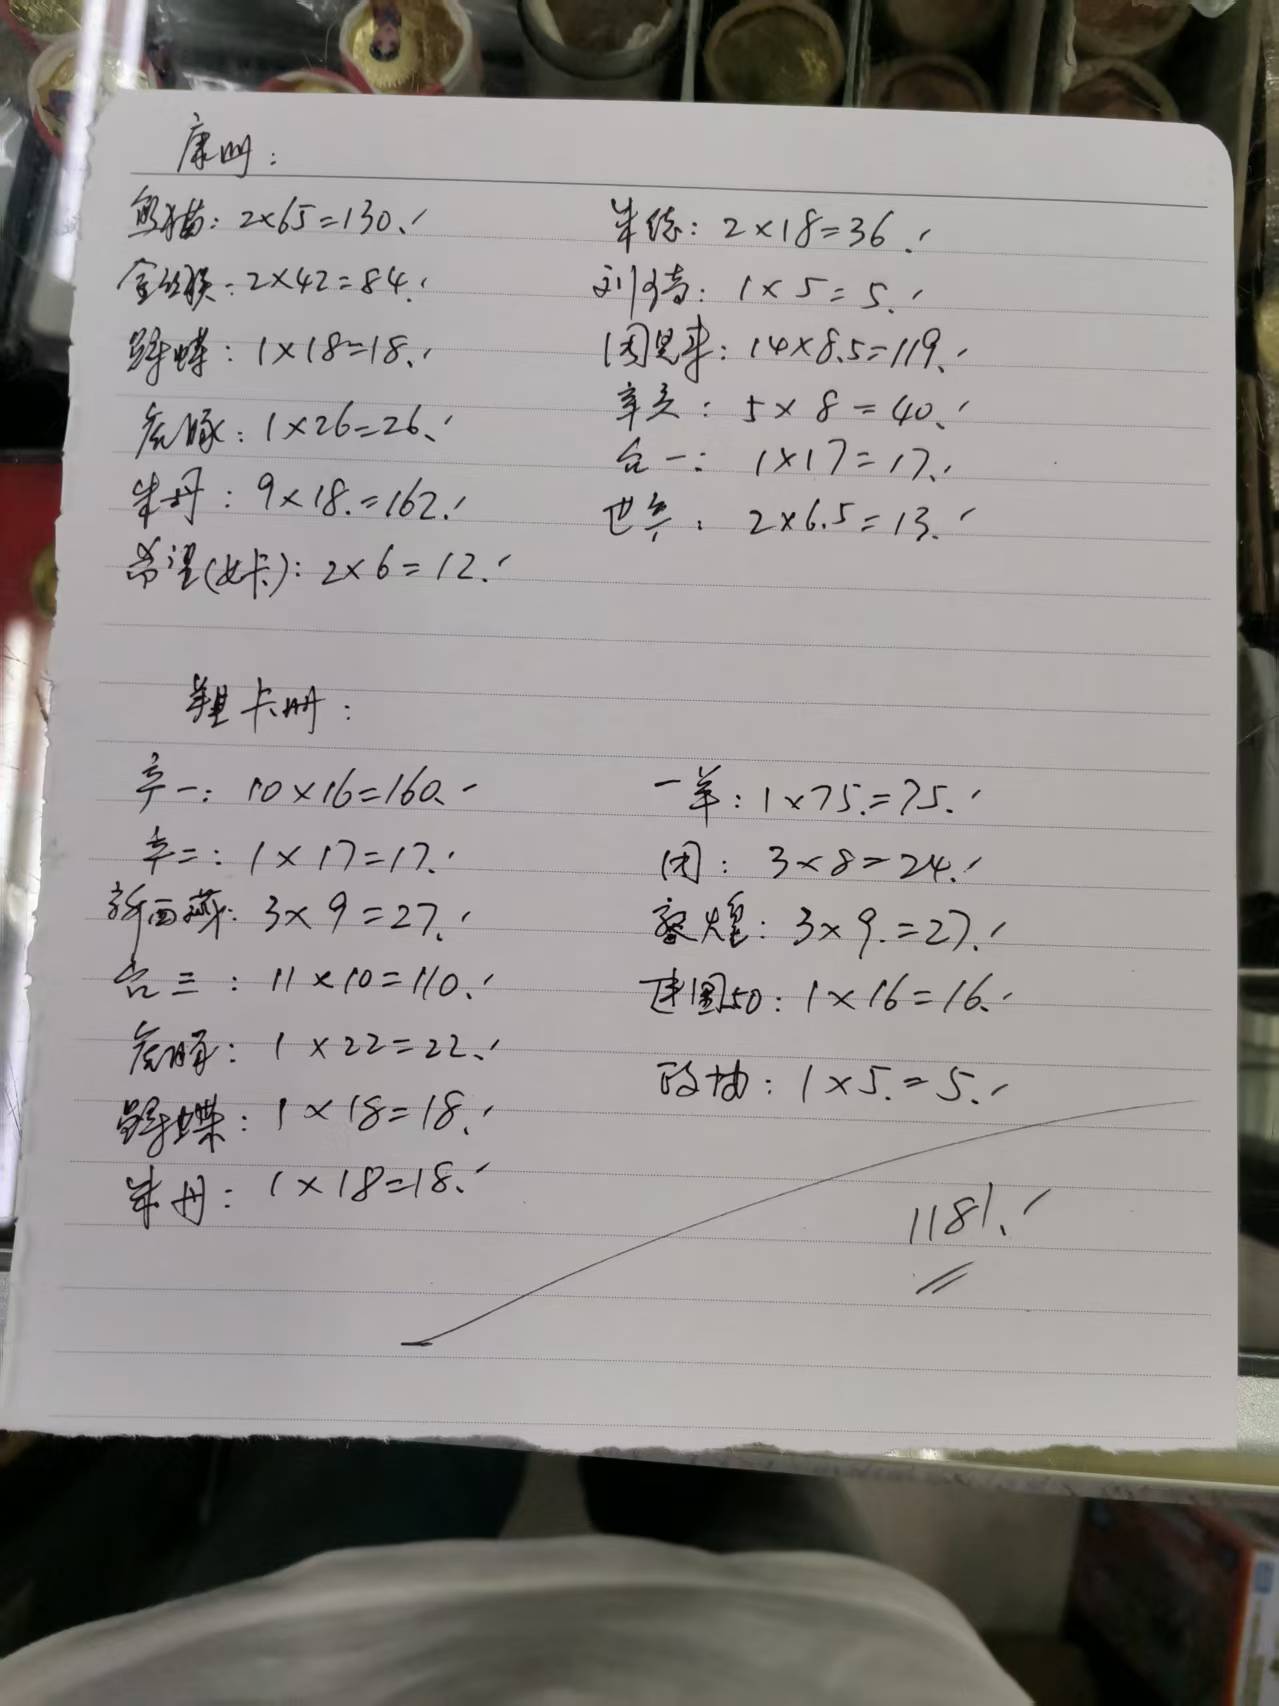 康册:
熊猫: 2×65=130.
金丝猴: 2×42=84.
蝶: 1×18=18.
豚: 1×26=26.
牡丹: 9×18.=162.
希望(卡): 2×6=12.
朱德: 2×18=36.
刘: 1×5=5.
14×8.5=119.
辛亥: 5×8=40.
台一: 1×17=17.
2×6.5=13.
卡册:
辛一: 10×16=160.
辛二: 1×17=17.
新西藏: 3×9=27.
台三: 11×10=110.
豚: 1×22=22.
蝶: 1×18=18.
牡丹: 1×18=18.
一羊: 1×75.=75.
3×8=24.
敦煌: 3×9.=27.
建国50: 1×16=16.
政协: 1×5.=5.
1181.